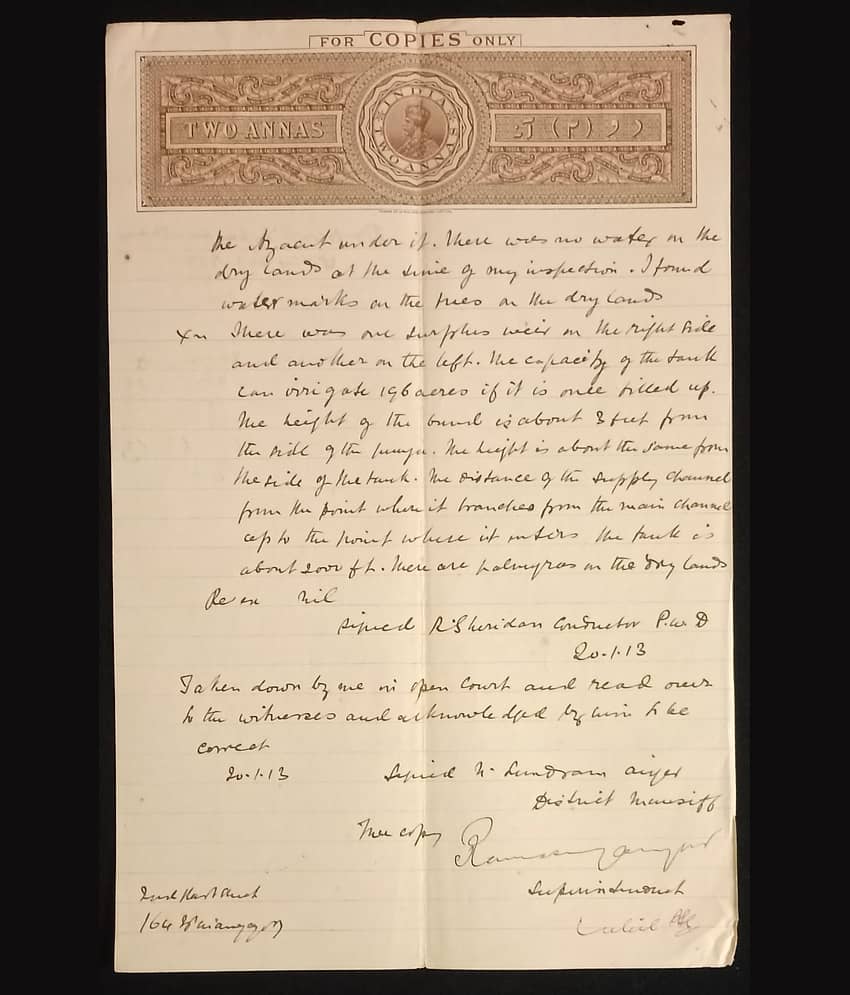 FOR COPIES ONLY
INDIA
TWO ANNAS
TWO ANNAS
the Ayacut under it. There was no water on the
dry lands at the time of my inspection. I found
water marks on the trees on the dry lands
Xn There was one surplus weir on the right side
and another on the left. The capacity of the tank
can irrigate 196 acres if it is once filled up.
The height of the bund is about 3 feet from
the side of the punja. The height is about the same from
the side of the tank. The distance of the supply channel
from the point where it branches from the main channel
up to the point where it enters the tank is
about 2000 ft. There are palmyras on the dry lands
Re ex Nil
signed R. Sheridan Conductor P.W.D
20.1.13
Taken down by me in open Court and read over
to the witnesses and acknowledged by him to be
correct
20.1.13 Signed N. Sundram aiyer
District Munsiff
True copy
Superintendent
164